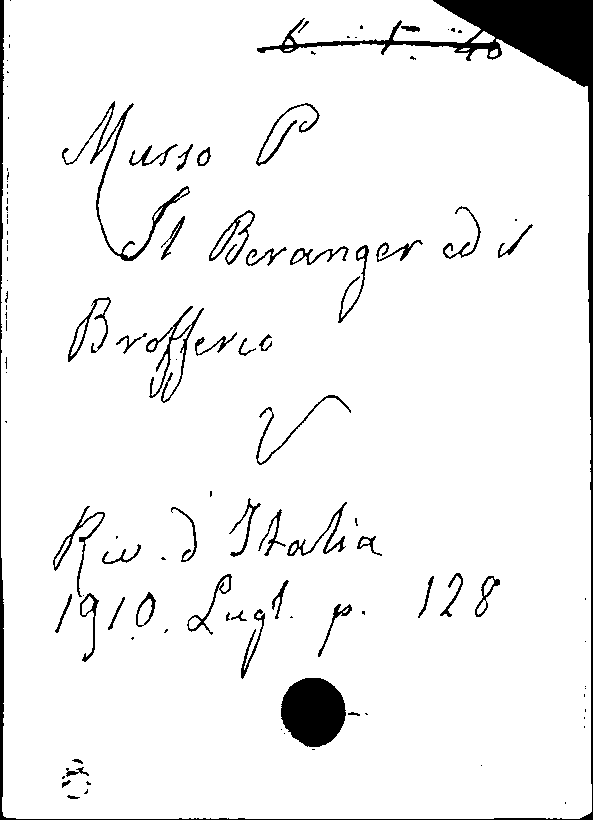 6. 1. 26
Musso P
Il Beranger ed il
Brofferio
V
Riv. d'Italia
1910. Lugl. p. 128